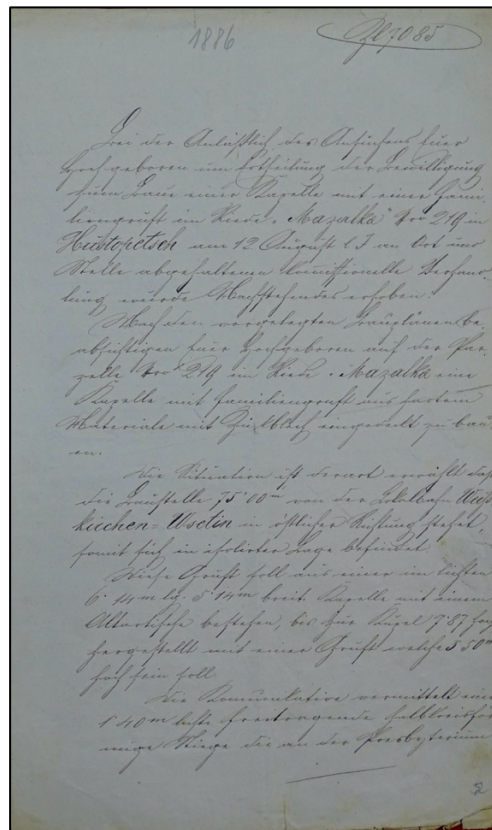 1886
Zl 7085
Bei der Anläßlich des Ansuchens Euer
Hochgeboren um Ertheilung der Bewilligung
zum Baue einer Kapelle mit einer Fami-
liengruft im Riede "Mazalka" Nro 219 in
Hustopetsch am 12 August l J an Ort und
Stelle abgehaltenen Commissionelle Verhand-
lung wurde Nachstehendes erhoben:
Nach den vorgelegten Bauplänen be-
absichtigen Euer Hochgeboren auf der Par-
zelle Nro 219 im Riede "Mazalka eine
Kapelle mit Familiengruft aus hartem
Materiale mit Zinkblech eingedeckt zu bau-
en.
Die Situation ist derart gewählt daß
die Baustelle 75·00m von der Lokalbahn Weiß-
kirchen = Wsetin in östlicher Richtung stehet,
somit sich in isolirter Lage befindet.
Diese Gruft soll aus einer im lichten
6·14m lg. 5·14m breit. Kapelle mit einem
Altartische bestehen, bis zur Kupel 7·87 hoch
hergestellt mit einer Gruft welche 3 50m
hoch sein soll
Die Komunikation vermittelt eine
1·40m lichte freitragende halbkreisför-
mige Stiege die an der Presbyteriums
2